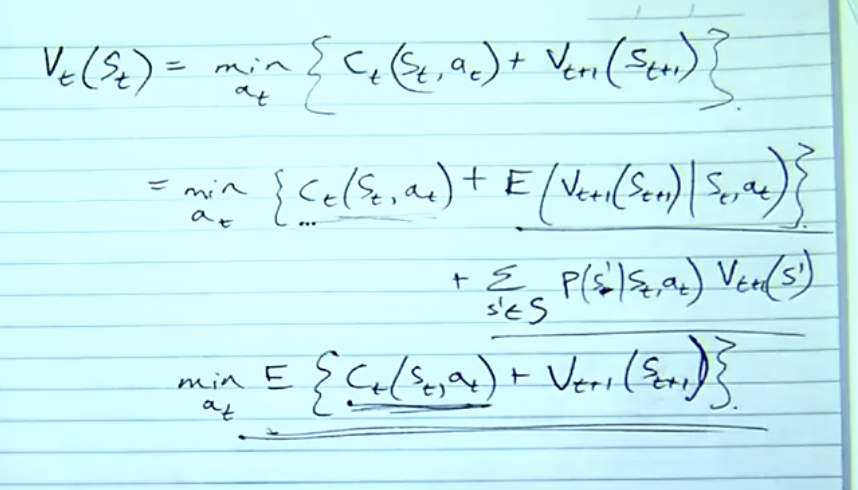 V_t(S_t) = min_{a_t} { C_t(S_t, a_t) + V_{t+1}(S_{t+1}) }.
= min_{a_t} { C_t(S_t, a_t) + E(V_{t+1}(S_{t+1}) | S_t, a_t) }
+ Σ_{s'∈S} P(s'|S_t, a_t) V_{t+1}(s')
min_{a_t} E { C_t(S_t, a_t) + V_{t+1}(S_{t+1}) }.